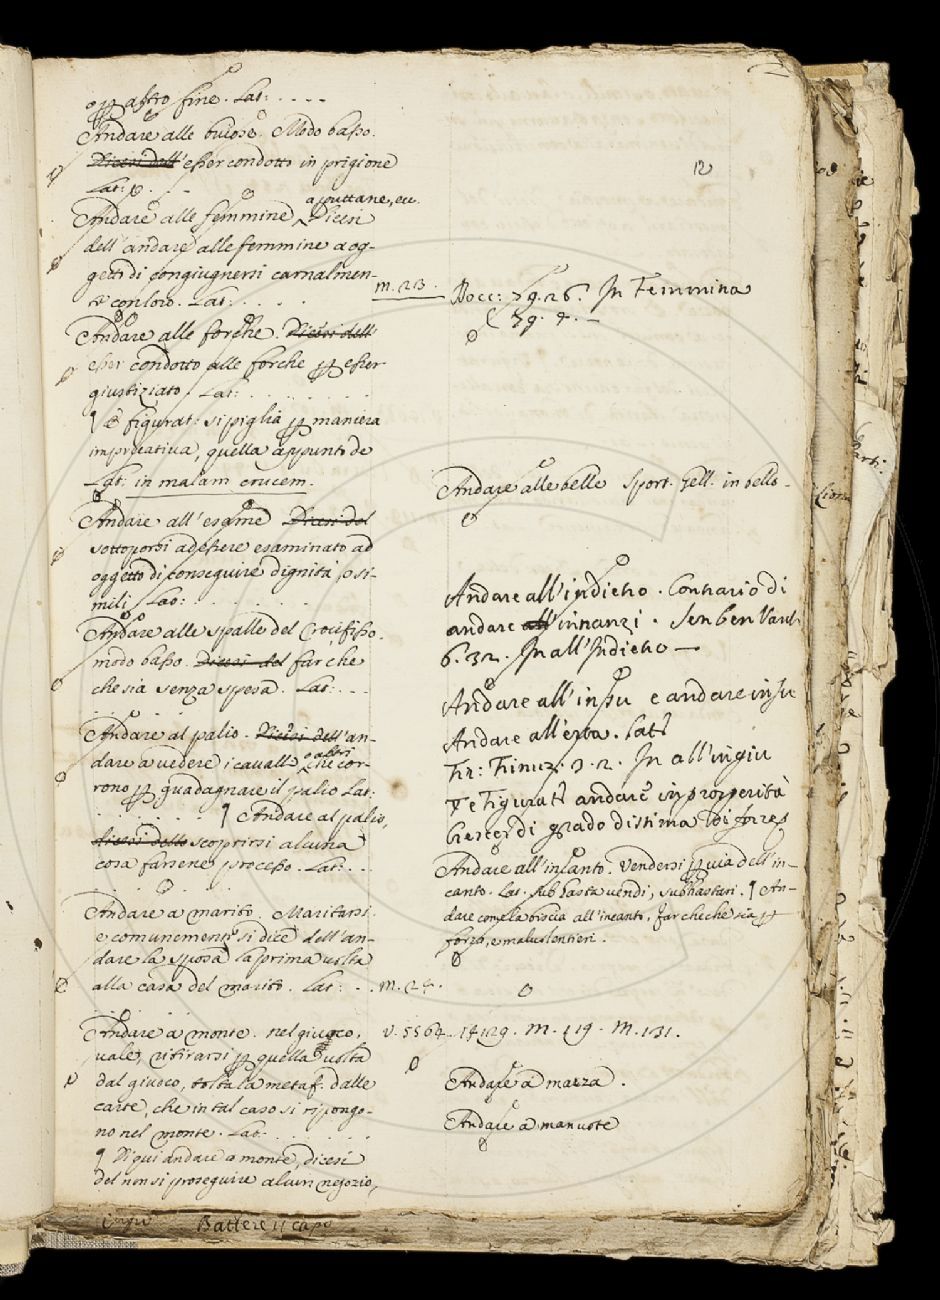 altro fine. Lat: . . . .
Andare alle buiose. Modo basso.
Dicesi dell' esser condotto in prigione
Lat: . . .
a puttane, ecc.
Andare alle femmine Dicesi
dell' andare alle femmine a og-
getti di congiugnersi carnalmen-
te con loro. Lat: . . . .
Andare alle forche. Dicesi dell'
esser condotto alle forche esser
giustiziato. Lat: . . . . . .
¶ E figurat: si piglia maniera
imprecativa, quella appunto de
Lat: in malam crucem.
Andare all' esame Dicesi del
sottoporsi ad essere esaminato ad
oggetto di conseguire dignità, o si-
mili Lat: . . . . . .
Andare alle spalle del Crocifisso.
modo basso. Dicesi del far che
che sia senza spesa. Lat: . . .
Andare al palio. Dicesi dell' an-
dare a vedere i cavalli o altri che cor-
rono guadagnare il palio Lat:
. . . . . . ¶ Andare al palio,
dicesi dello scoprirsi alcuna
cosa farsene processo. Lat: . . .
Andare a marito. Maritarsi.
e comunemente si dice dell' an-
dare la sposa la prima volta
alla casa del marito. Lat: . . .
Andare a monte. nel giuoco,
vale, ritirarsi quella volta
dal giuoco, tolta la metaf. dalle
carte, che in tal caso si ripongo-
no nel monte. Lat. . . . . . .
¶ Di qui andare a monte, dicesi
del non si proseguire alcun negozio,
Battere il capo
12
m. 213.
Bocc: 59. 26. In Femmina
Andare alle belle Sport. Gell. in bello.
Andare all' indietro. Contrario di
andare all' innanzi. Sen ben Varch
6. 32. In all' Indietro —
Andare all' insu e andare insu
Andare all' erta. Lat:
Fir: Trinuz. 3. 2. In all' ingiu
¶ e Figurat: andare in prosperità
crescer di grado di stima
Andare all' incanto. Vendersi via dell' in-
canto. Lat. sub hasta vendi, subhastari. ¶ An-
dare come la biscia all' incanto, far checche sia
forza, e malvolentieri.
m. 24.
v. 5564. 14129. m. 119. m. 131.
Andare a mazza.
Andare a man vote